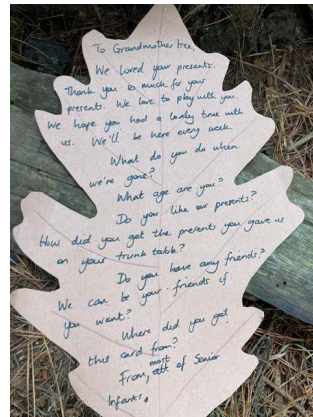 To Grandmother tree,
We loved your presents.
Thank you so much for your
presents. We love to play with you.
We hope you had a lovely time with
us. We'll be here every week.
What do you do when
we're gone?
What age are you?
Do you like our presents?
How did you get the presents you gave us
on your trunk table?
Do you have any friends?
We can be your friends if
you want?
Where did you get
this card from?
From, most of Senior
Infants.